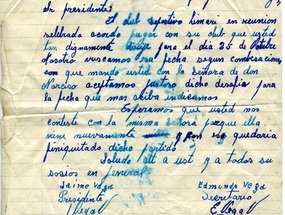 Sr presidente:
El club deportivo Limari en reunion
selebrada acordo jugar con su club que usted
tan dignamente dirije para el dia 25 de Octubre
Nosotro buscamos esa fecha segun conversaciones
con que mando usted con la Señora de don
Narciso aceptamos gustoso dicho desafio para
la fecha que mas ariba indicamos
Esperamos que usted nos
conteste con la misma señora porque ella
viene nuevamente y con eso quedaria
finiquitado dicho partido
Saluda att a ust y a todos su
socios en jeneral
Jaime Vega Edmundo Vega
Presidente Secretario
JVega EVega